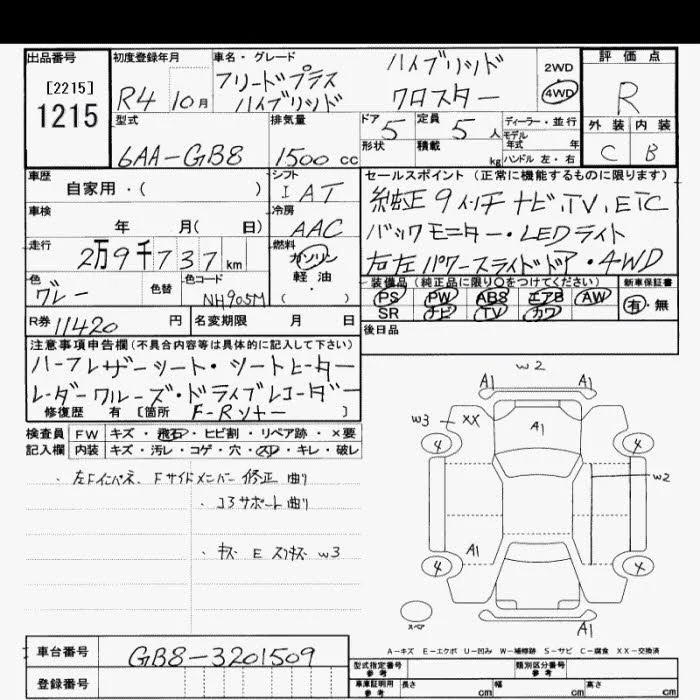 出品番号
[2215]
1215
初度登録年月
R4 10月
車名・グレード
フリードプラス ハイブリッド
ハイブリッド クロスター
2WD
4WD
評価点
R
外装 内装
C B
型式
6AA-GB8
排気量
1500 cc
ドア 5
形状
定員 5 人
積載 kg
ディーラー・並行
モデル
年式 年
ハンドル 左・右
車歴
自家用・( )
シフト
IAT
車検
年 月( 日)
冷房
AAC
走行
2万9千737km
燃料
ガソリン
軽油
・
( )
色
グレー
色替
色コード
NH905M
セールスポイント(正常に機能するものに限ります)
純正9インチナビ、TV、ETC
バックモニター・LEDライト
右左パワースライドドア・4WD
装備品(純正品に限り○をつけてください)
PS PW ABS エアB AW
SR ナビ TV カワ
新車保証書
有・無
R券 11420 円
名変期限 月 日
後日品
注意事項申告欄(不具合内容等は具体的に記入して下さい)
ハーフレザーシート・シートヒーター
レーダークルーズ・ドライブレコーダー
修復歴 有 [箇所 F-Rソナー ]
検査員 FW キズ・飛石・ヒビ割・リペア跡・×要
記入欄 内装 キズ・汚レ・コゲ・穴・スレ・キレ・破レ
・左Fインパネ、Fサイドメンバー 修正 曲り
・コアサポート曲り
・キズ E スリキズ w3
w2
A1 A1
w3 XX
A1
4 4
w2
A1
4 4
スペア
A1
A-キズ E-エクボ U-凹み W-補修跡 S-サビ C-腐食 XX-交換済
車台番号 GB8-3201509
登録番号
型式指定番号
参考
類別区分番号
参考
車庫証明用
参考
長さ cm 幅 cm 高さ cm